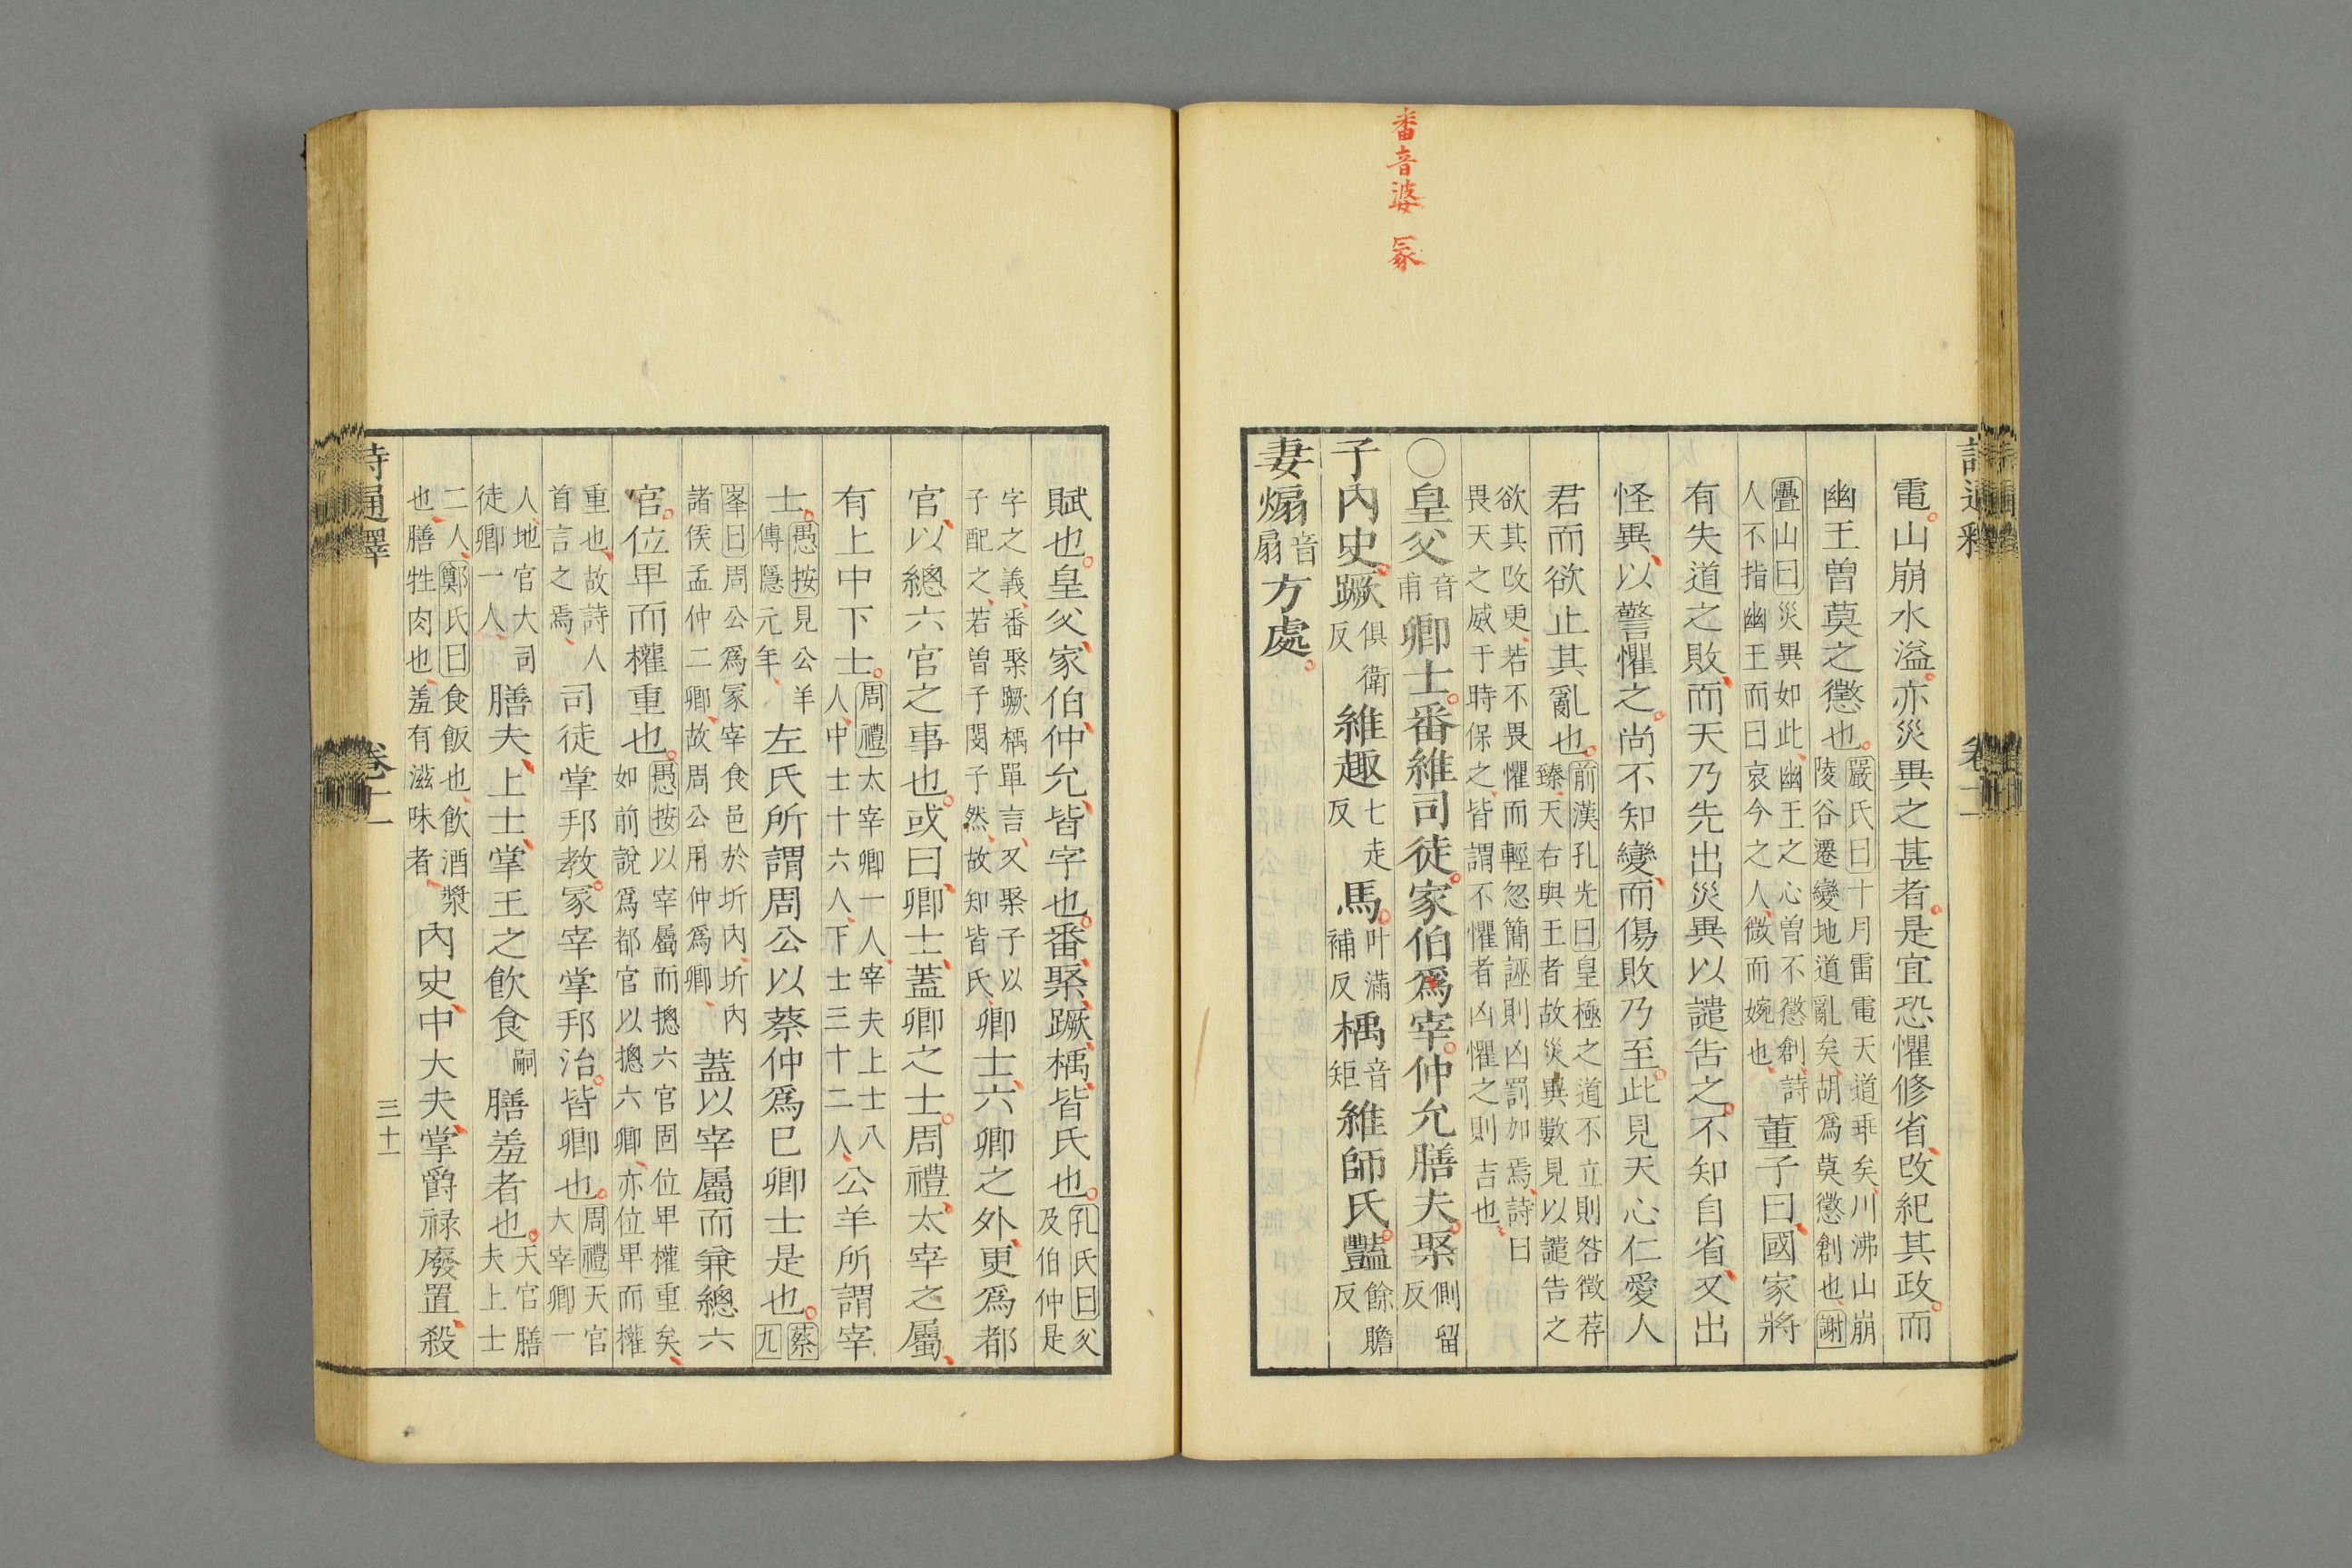 番音婆 冢
電山崩水溢亦災異之甚者是宜恐懼修省改紀其政而
幽王曽莫之懲也嚴氏曰十月雷電天道乖矣川沸山崩陵谷遷變地道亂矣胡爲莫懲創也謝
疊山曰災異如此幽王之心曽不懲創詩人不指幽王而曰哀今之人微而婉也董子曰國家將
有失道之敗而天乃先出災異以譴告之不知自省又出
怪異以警懼之尚不知變而傷敗乃至此見天心仁愛人
君而欲止其亂也前漢孔光曰皇極之道不立則咎徴荐臻天右與王者故災異數見以譴告之
欲其改更若不畏懼而輕忽簡誣則凶罰加焉詩曰畏天之威于時保之皆謂不懼者凶懼之則吉也
○皇父音甫卿士番維司徒家伯爲宰仲允膳夫棸側留反
子內史蹶俱衛反維趣七走反馬叶滿補反楀音矩維師氏豔餘贍反
妻煽音扇方處
賦也皇父家伯仲允皆字也番棸蹶楀皆氏也孔氏曰父及伯仲是
字之義番棸蹶楀單言又棸子以子配之若曽子閔子然故知皆氏卿士六卿之外更爲都
官以總六官之事也或曰卿士蓋卿之士周禮太宰之屬
有上中下士周禮太宰卿一人宰夫上士八人中士十六人下士三十二人公羊所謂宰
士愚按見公羊傳隱元年左氏所謂周公以蔡仲爲已卿士是也蔡九
峯曰周公爲冢宰食邑於圻內圻內諸侯孟仲二卿故周公用仲爲卿蓋以宰屬而兼總六
官位卑而權重也愚按以宰屬而摠六官固位卑權重矣如前說爲都官以摠六卿亦位卑而權
重也故詩人首言之焉司徒掌邦教冢宰掌邦治皆卿也周禮天官大宰卿一
人地官大司徒卿一人膳夫上士掌王之飲食嗣膳羞者也天官膳夫上士
二人鄭氏曰食飯也飲酒漿也膳牲肉也羞有滋味者內史中大夫掌爵祿廢置殺
詩通釋 卷十一 三十一